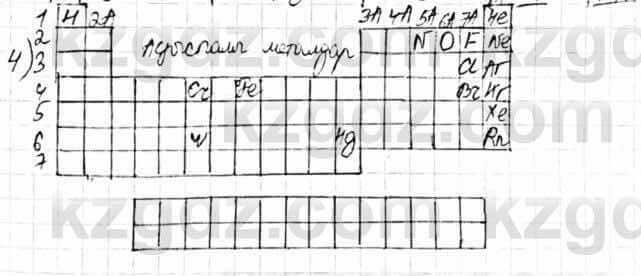 1 H 2A 3A 4A 5A 6A 7A He
2 Ауыспалы металдар N O F Ne
4) 3 Cl Ar
4 Cr Fe Br Kr
5 Xe
6 W Hg Rn
7
kzgdz.com